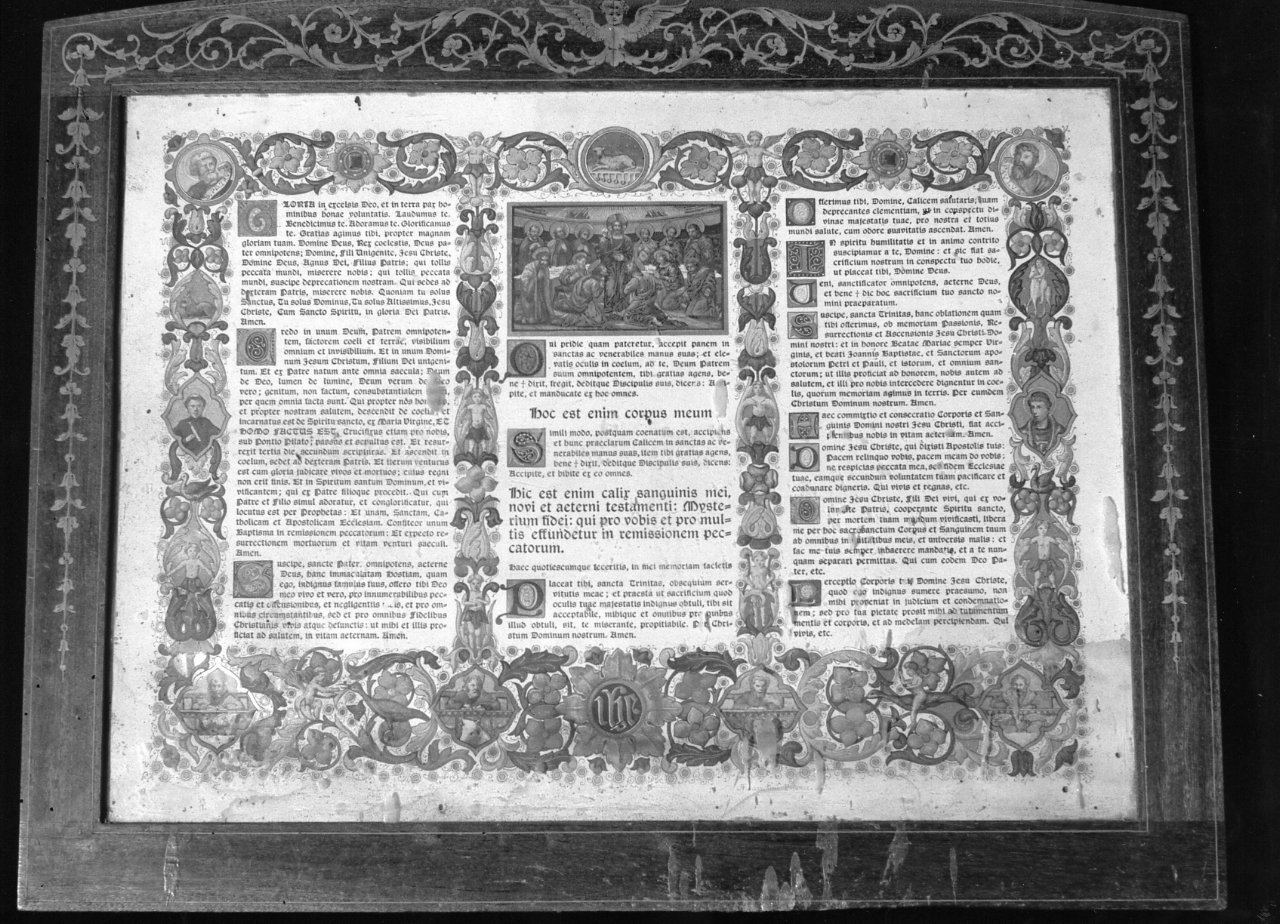 GLORIA in excelsis Deo, et in terra pax ho-
minibus bonae voluntatis. Laudamus te.
Benedicimus te. Adoramus te. Glorificamus
te. Gratias agimus tibi, propter magnam
gloriam tuam. Domine Deus, Rex coelestis, Deus pa-
ter omnipotens; Domine, Fili Unigenite, Jesu Christe,
Domine Deus, Agnus Dei, Filius Patris; qui tollis
peccata mundi, miserere nobis; qui tollis peccata
mundi, suscipe deprecationem nostram. Qui sedes ad
dexteram Patris, miserere nobis. Quoniam tu solus
Sanctus, Tu solus Dominus, Tu solus Altissimus, Jesu
Christe, Cum Sancto Spiritu, in gloria Dei Patris.
Amen.
redo in unum Deum, Patrem omnipoten-
tem, factorem coeli et terrae, visibilium
omnium et invisibilium. Et in unum Domi-
num Jesum Christum, Filium Dei unigeni-
tum. Et ex Patre natum ante omnia saecula; Deum
de Deo, lumen de lumine, Deum verum de Deo
vero; genitum, non factum, consubstantialem
per quem omnia facta sunt. Qui propter nos
et propter nostram salutem, descendit de coelis, et
incarnatus est de Spiritu sancto, ex Maria Virgine, ET
HOMO FACTUS EST. Crucifixus etiam pro nobis,
sub Pontio Pilato; passus et sepultus est. Et resur-
rexit tertia die, secundum scripturas. Et ascendit in
coelum, sedet ad dexteram Patris. Et iterum venturus
est cum gloria judicare vivos et mortuos; cuius regni
non erit finis. Et in Spiritum santum Dominum, et vi-
vificantem; qui ex Patre filioque procedit. Qui cum
Patre et Filio simul adoratur, et conglorificatur, qui
locutus est per Prophetas: Et unam, Sanctam, Ca-
tholicam et Apostolicam Ecclesiam. Confiteor unum
Baptisma in remissionem peccatorum: Et expecto re-
surrectionem mortuorum et vitam venturi saeculi.
Amen.
Suscipe, sancte Pater, omnipotens, aeterne
Deus, hanc immaculatam Hostiam, quam
ego, indignus famulus tuus, offero tibi Deo
meo vivo et vero, pro innumerabilibus pec-
catis et offensionibus, et negligentiis meis, et pro om-
nibus circumstantibus, sed et pro omnibus Fidelibus
Christianis vivis atque defunctis: ut mihi et illis pro-
ficiat ad salutem, in vitam aeternam. Amen.
Qui pridie quam pateretur, accepit panem in
sanctas ac venerabiles manus suas; et ele-
vatis oculis in coelum, ad te, Deum Patrem
suum omnipotentem, tibi gratias agens, be-
ne † dixit, fregit, deditque Discipulis suis, dicens: Acci-
pite, et manducate ex hoc omnes.
Hoc est enim corpus meum
Simili modo, postquam coenatum est, accipiens
et hunc praeclarum Calicem in sanctas ac ve-
nerabiles manus suas, item tibi gratias agens,
bene † dixit, deditque Discipulis suis, dicens:
Accipite, et bibite ex eo omnes.
Hic est enim calix sanguinis mei,
novi et aeterni testamenti: Myste-
rium fidei: qui pro vobis et pro mul-
tis effundetur in remissionem pec-
catorum.
Haec quotiescumque feceritis, in mei memoriam facietis
Placeat tibi, sancta Trinitas, obsequium ser-
vitutis meae; et praesta ut sacrificium quod
oculis tuae majestatis indignus obtuli, tibi sit
acceptabile, mihique et omnibus pro quibus
illud obtuli, sit, te miserante, propitiabile. Per Chri-
stum Dominum nostrum. Amen.
Offerimus tibi, Domine, Calicem salutaris, tuam
deprecantes clementiam, ut in conspectu di-
vinae majestatis tuae, pro nostra et totius
mundi salute, cum odore suavitatis ascendat. Amen.
In spiritu humilitatis et in animo contrito
suscipiamur a te, Domine: et sic fiat sa-
crificium nostrum in conspectu tuo hodie,
ut placeat tibi, Domine Deus.
Veni, sanctificator omnipotens, aeterne Deus,
et bene † dic hoc sacrificium tuo sancto no-
mini praeparatum.
Suscipe, sancta Trinitas, hanc oblationem quam
tibi offerimus, ob memoriam Passionis, Re-
surrectionis et Ascensionis Jesu Christi Do-
mini nostri: et in honore Beatae Mariae semper Vir-
ginis, et beati Joannis Baptistae, et Sanctorum apo-
stolorum Petri et Pauli, et istorum, et omnium san-
ctorum; ut illis proficiat ad honorem, nobis autem ad
salutem, et illi pro nobis intercedere dignentur in coe-
lis, quorum memoriam agimus in terris. Per eumdem
Christum Dominum nostrum. Amen.
Haec commixtio et consecratio Corporis et San-
guinis Domini nostri Jesu Christi, fiat acci-
pientibus nobis in vitam aeternam. Amen.
Domine Jesu Christe, qui dixisti Apostolis tuis:
Pacem relinquo vobis, pacem meam do vobis:
ne respicias peccata mea, sed fidem Ecclesiae
tuae, eamque secundum voluntatem tuam pacificare et
coadunare digneris. Qui vivis et regnas, etc.
omine Jesu Christe, Fili Dei vivi, qui ex vo-
luntate Patris, cooperante Spiritu sancto,
per mortem tuam mundum vivificasti, libera
me per hoc sacrosanctum Corpus et Sanguinem tuum
ab omnibus iniquitatibus meis, et universis malis: et
fac me tuis semper inhaerere mandatis, et a te nun-
quam separari permittas. Qui cum eodem Deo Pa-
ter, etc.
Perceptio Corporis tui Domine Jesu Christe,
quod ego indignus sumere praesumo, non
mihi proveniat in judicium et condemnatio-
nem; sed pro tua pietate prosit mihi ad tutamentum
mentis et corporis, et ad medelam percipiendam. Qui
vivis, etc.